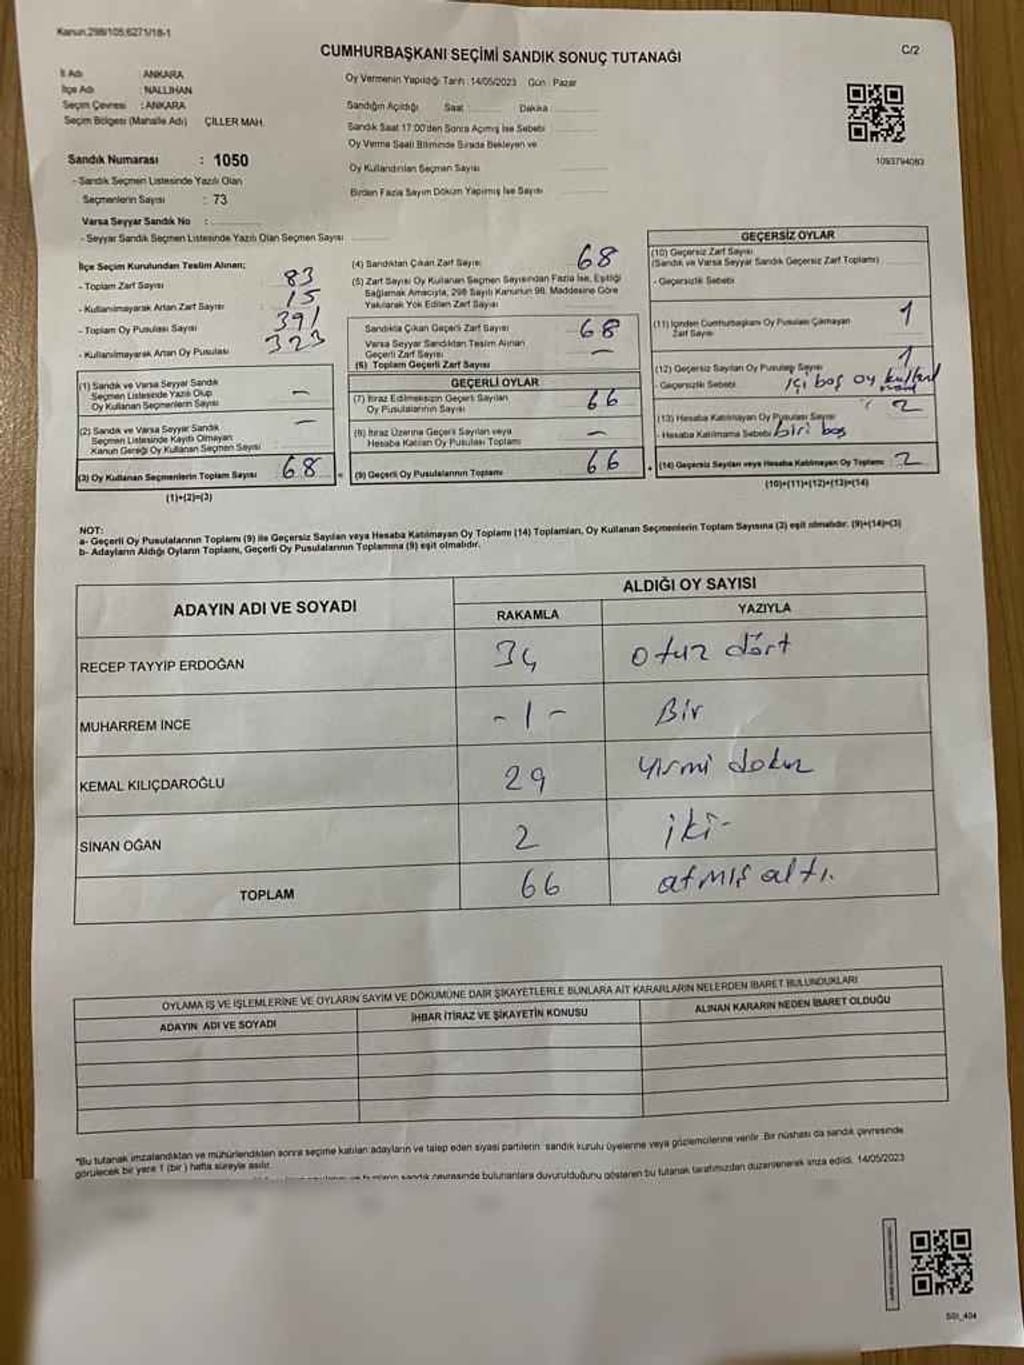 Kanun:298/105,6271/18-1
C/2
CUMHURBAŞKANI SEÇİMİ SANDIK SONUÇ TUTANAĞI
İl Adı : ANKARA
İlçe Adı : NALLIHAN
Seçim Çevresi : ANKARA
Seçim Bölgesi (Mahalle Adı) ÇİLLER MAH.
Oy Vermenin Yapıldığı Tarih : 14/05/2023 Gün : Pazar
Sandığın Açıldığı Saat : Dakika :
Sandık Saat 17:00'den Sonra Açımış İse Sebebi
Oy Verme Saati Bitiminde Sırada Bekleyen ve
Oy Kullandırılan Seçmen Sayısı
Birden Fazla Sayım Döküm Yapılmış İse Sayısı
1093794083
Sandık Numarası : 1050
- Sandık Seçmen Listesinde Yazılı Olan
Seçmenlerin Sayısı : 73
Varsa Seyyar Sandık No :
- Seyyar Sandık Seçmen Listesinde Yazılı Olan Seçmen Sayısı
İlçe Seçim Kurulundan Teslim Alınan;
- Toplam Zarf Sayısı 83
- Kullanılmayarak Artan Zarf Sayısı 15
- Toplam Oy Pusulası Sayısı 391
- Kullanılmayarak Artan Oy Pusulası 323
(1) Sandık ve Varsa Seyyar Sandık
Seçmen Listesinde Yazılı Olup
Oy Kullanan Seçmenlerin Sayısı —
(2) Sandık ve Varsa Seyyar Sandık
Seçmen Listesinde Kayıtlı Olmayan
Kanun Gereği Oy Kullanan Seçmen Sayısı —
(3) Oy Kullanan Seçmenlerin Toplam Sayısı 68 =
(1)+(2)=(3)
(4) Sandıktan Çıkan Zarf Sayısı 68
(5) Zarf Sayısı Oy Kullanan Seçmen Sayısından Fazla İse, Eşitliği
Sağlamak Amacıyla, 298 Sayılı Kanunun 98. Maddesine Göre
Yakılarak Yok Edilen Zarf Sayısı
Sandıkta Çıkan Geçerli Zarf Sayısı 68
Varsa Seyyar Sandıktan Teslim Alınan
Geçerli Zarf Sayısı —
(6) Toplam Geçerli Zarf Sayısı
GEÇERLİ OYLAR
(7) İtiraz Edilmeksizin Geçerli Sayılan
Oy Pusulalarının Sayısı 66
(8) İtiraz Üzerine Geçerli Sayılan veya
Hesaba Katılan Oy Pusulası Toplamı —
(9) Geçerli Oy Pusulalarının Toplamı 66 +
GEÇERSİZ OYLAR
(10) Geçersiz Zarf Sayısı
(Sandık ve Varsa Seyyar Sandık Geçersiz Zarf Toplamı)
- Geçersizlik Sebebi
(11) İçinden Cumhurbaşkanı Oy Pusulası Çıkmayan
Zarf Sayısı 1
(12) Geçersiz Sayılan Oy Pusulası Sayısı 1
- Geçersizlik Sebebi içi boş oy
(13) Hesaba Katılmayan Oy Pusulası Sayısı 2
- Hesaba Katılmama Sebebi biri boş
(14) Geçersiz Sayılan veya Hesaba Katılmayan Oy Toplamı 2
(10)+(11)+(12)+(13)=(14)
NOT:
a- Geçerli Oy Pusulalarının Toplamı (9) ile Geçersiz Sayılan veya Hesaba Katılmayan Oy Toplamı (14) Toplamları, Oy Kullanan Seçmenlerin Toplam Sayısına (3) eşit olmalıdır. (9)+(14)=(3)
b- Adayların Aldığı Oyların Toplamı, Geçerli Oy Pusulalarının Toplamına (9) eşit olmalıdır.
ADAYIN ADI VE SOYADI
ALDIĞI OY SAYISI
RAKAMLA YAZIYLA
RECEP TAYYİP ERDOĞAN 34 otuz dört
MUHARREM İNCE - 1 - Bir
KEMAL KILIÇDAROĞLU 29 yirmi dokuz
SİNAN OĞAN 2 iki-
TOPLAM 66 atmış altı.
OYLAMA İŞ VE İŞLEMLERİNE VE OYLARIN SAYIM VE DÖKÜMÜNE DAİR ŞİKAYETLERLE BUNLARA AİT KARARLARIN NELERDEN İBARET BULUNDUKLARI
ADAYIN ADI VE SOYADI İHBAR İTİRAZ VE ŞİKAYETİN KONUSU ALINAN KARARIN NEDEN İBARET OLDUĞU
*Bu tutanak imzalandıktan ve mühürlendikten sonra seçime katılan adayların ve talep eden siyasi partilerin sandık kurulu üyelerine veya gözlemcilerine verilir. Bir nüshası da sandık çevresinde
görülecek bir yere 1 (bir) hafta süreyle asılır.
sandık çevresinde bulunanlara duyurulduğunu gösteren bu tutanak tarafımızdan düzenlenerek imza edildi. 14/05/2023